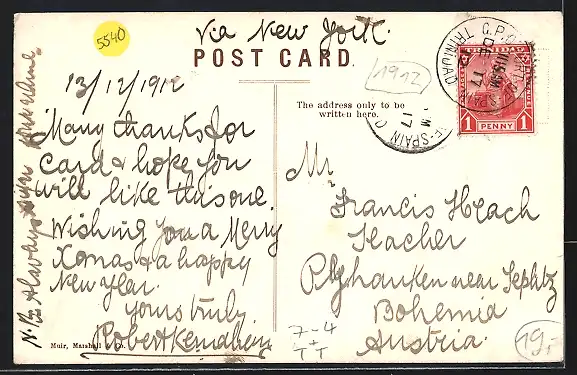 5540
Via New York.
POST CARD.
1912
TRINIDAD
1 PENNY 1
G.P.O.
TRINIDAD
DE 17
The address only to be
written here.
13/12/1912
Many thanks for
card & hope you
will like this one.
Wishing you a Merry
Xmas & a happy
New Year.
Yours truly
Robert
N.B. Always sign your name
Mr
Francis
Teacher
near Teplitz
Bohemia
Austria.
7-4
+
TT
19,-
Muir, Marshall & Co.